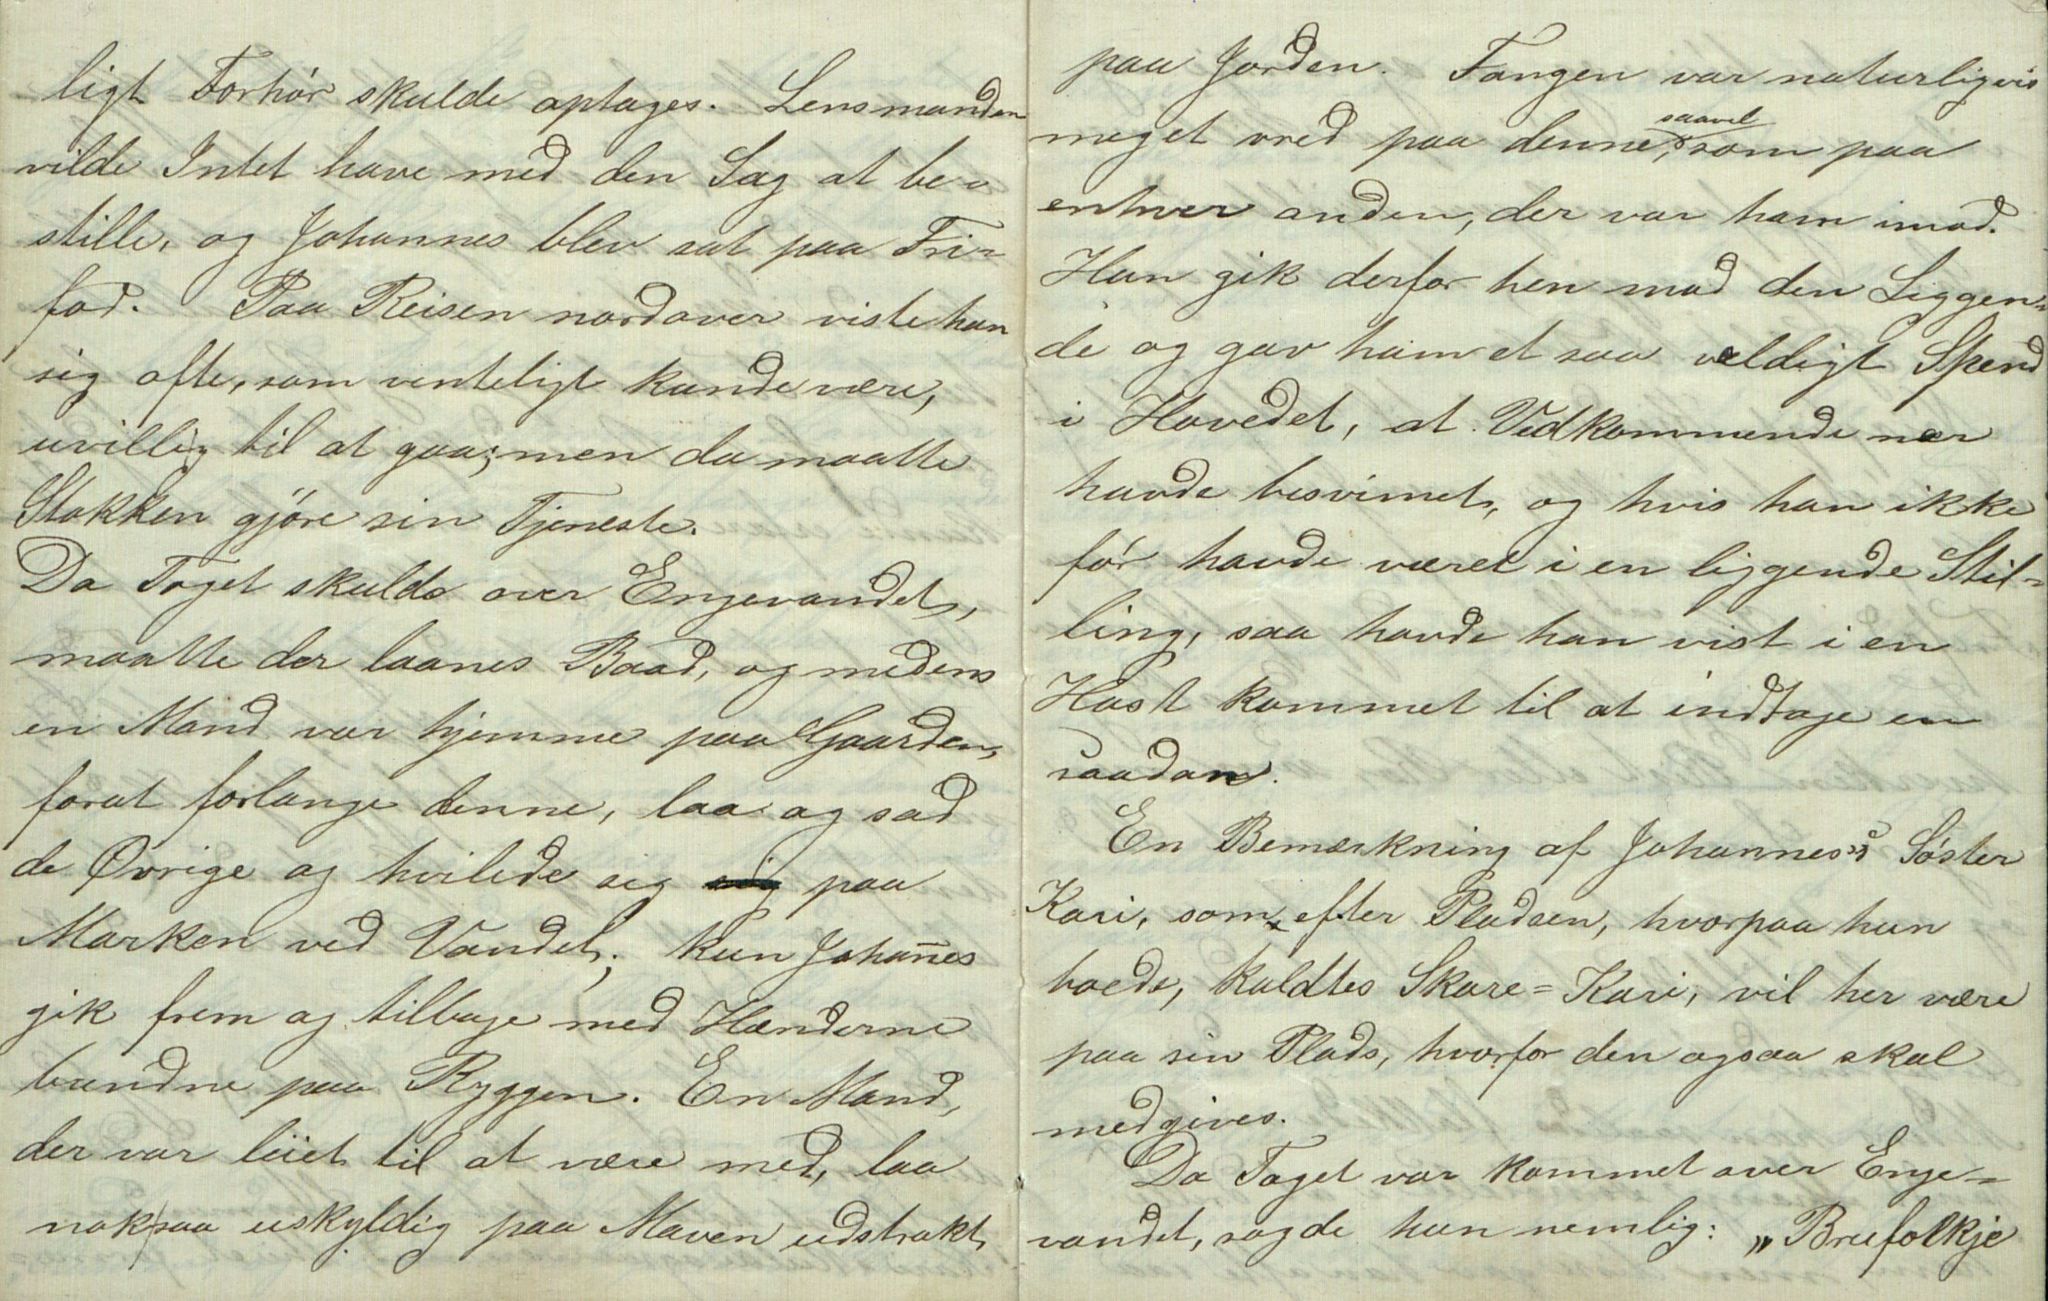 ligt Forhør skulde optages. Lensmanden
vilde Intet have med den Sag at be-
stille, og Johannes blev sat paa Fri-
fod. Paa Reisen nordover viste han
sig ofte, som venteligt kunde være,
uvillig til at gaa; men da maatte
Stokken gjøre sin Tjeneste.
Da Toget skulde over Engevandet,
maatte der laanes Baad, og medens
en Mand var hjemme paa Gaarden,
forat forlange denne, laa og sad
de Øvrige og hvilede sig paa
Marken ved Vandet; kun Johan̄es
gik frem og tilbage med Hænderne
bundne paa Ryggen. En Mand,
der var leiet til at være med, laa
nok saa uskyldig paa Maven udstrakt
paa Jorden. Fangen var naturligvis
meget vred paa denne, saavel som paa
enhver anden, der var ham imod.
Han gik derfor hen mod den Liggen-
de og gav ham et saa vældigt Spend
i Hovedet, at Vedkommende nær
havde besvimet, og hvis han ikke
før havde været i en liggende Stil-
ling, saa havde han vist i en
Hast kommet til at indtage en
saadan.
En Bemærkning af Johannes's Søster
Kari, som efter Pladsen, hvorpaa hun
boede, kaldtes Skare-Kari, vil her være
paa sin Plads, hvorfor den ogsaa skal
medgives.
Da Toget var kommet over Enge-
vandet, sagde hun nemlig: „Brufolkje